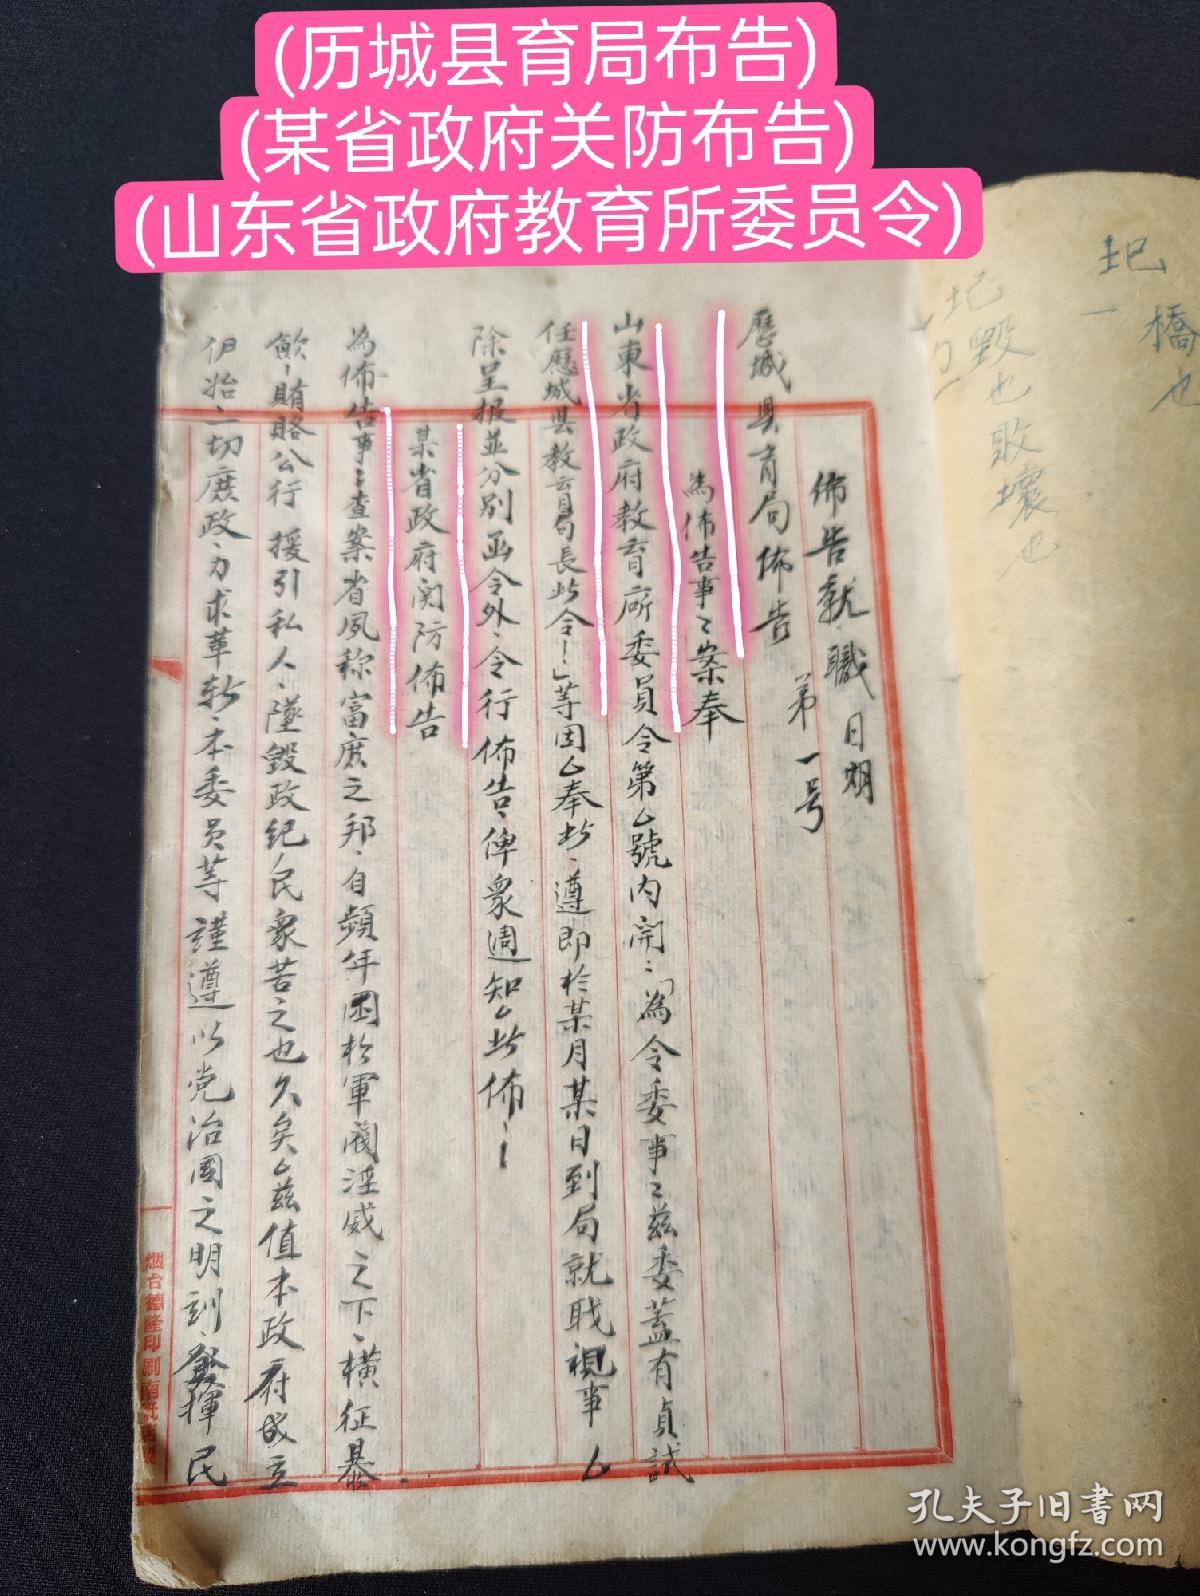 (历城县育局布告)
(某省政府关防布告)
(山东省政府教育所委员令)
圯 橋也
一
圯毀也敗壞也
佈告就職日期
歷城县育局佈告 第一号
為佈告事:案奉
山東省政府教育所委員令第厶號内開:「為令委事:兹委蓋有貞試
任歷城县教育局長此令!」等因厶奉此、遵即於某月某日到局就职視事厶
除呈报並分别函令外、令行佈告、俾衆週知厶此佈
某省政府関防佈告
為佈告事:查案省夙称富庶之邦、自頻年困於軍閥淫威之下、橫征暴
歛、賄賂公行 援引私人、墜毀政纪、民衆苦之也久矣厶兹值本政府成立
伊始一切庶政、力求革新、本委员等 謹遵以党治國之明訓、發揮民
烟台德隆印刷南紙
孔夫子旧书网
www.kongfz.com